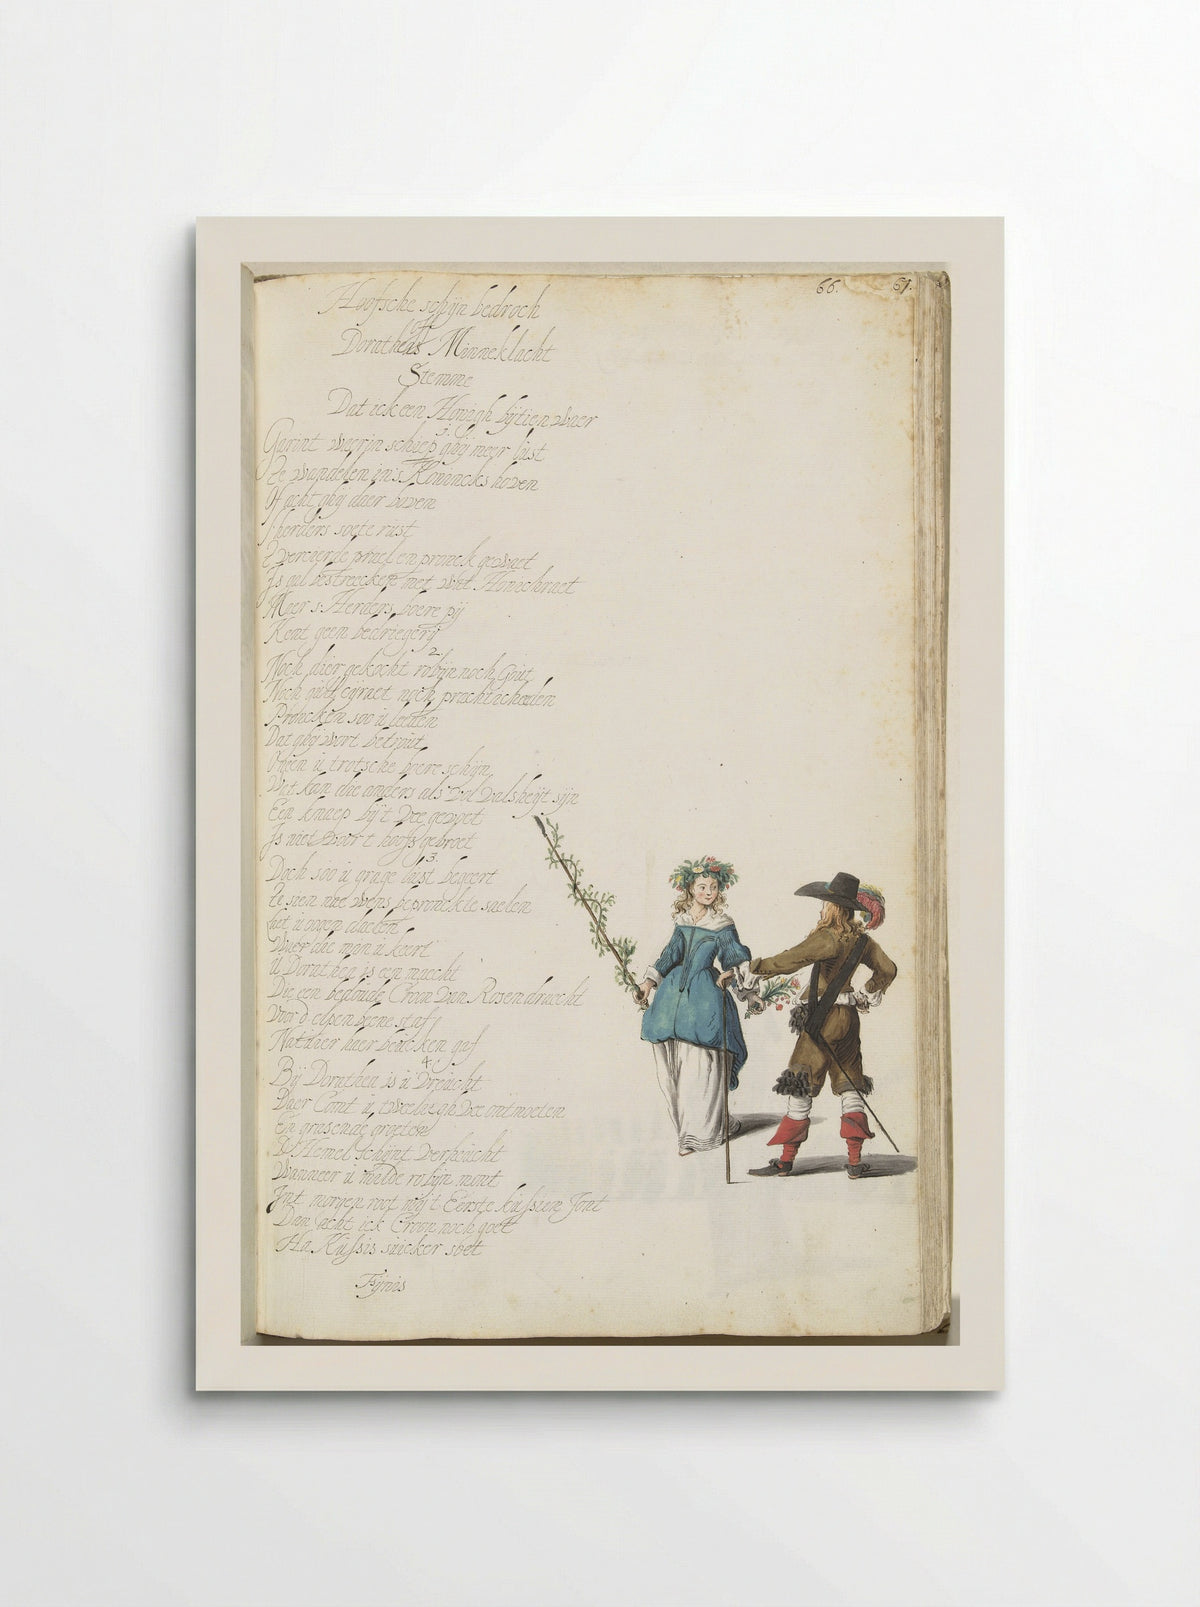 66. 61.
Hoofsche schijn bedroch
off
Doratheas Minneklacht
Stemme
Dat ick een Honigh bijtien waer
Garint waerin schiep ghij meer lust
Te wandelen in's Konincks hoven
Of acht ghij daer boven
Sherders soete rust
pracl en pronck gewaet
Is gal bestreecken met wat Honichraet
Maer s Herders boere pij
Kent geen bedriegerij
2.
Noch dier gekocht robijn noch Goüt
Noch noch pracht
Proncken soo ü leeden
Dat ghij wort betroüt
Offen ü trotsche boere schijn
Wat kan die anders als Vol Valsheijt sijn
Een knaep bij't Vee gevoet
Is niet Voor t hoofs gebroet
3.
Doch soo ü grage lüst begeert
Te sien nae wens bepronckte saelen
Laet ü oogen daelen
Waer die men ü keert
U Dorathea is een maecht
Die een bedoüde Croon Van Rosen draecht
Voor d elpen beene staf
Natüer haer gaf
4.
Bij Dorathea is ü Vreücht
Daer Comt ü twelligh Vee ontmoeten
En grasende groeten
D Hemel schijnt Verheücht
Wanneer ü milde robijn mont
Int morgen root mij t Eerste küssien Jont
Dan acht ick Croon noch goet
Ha Küssis süicker soet
Fijnis